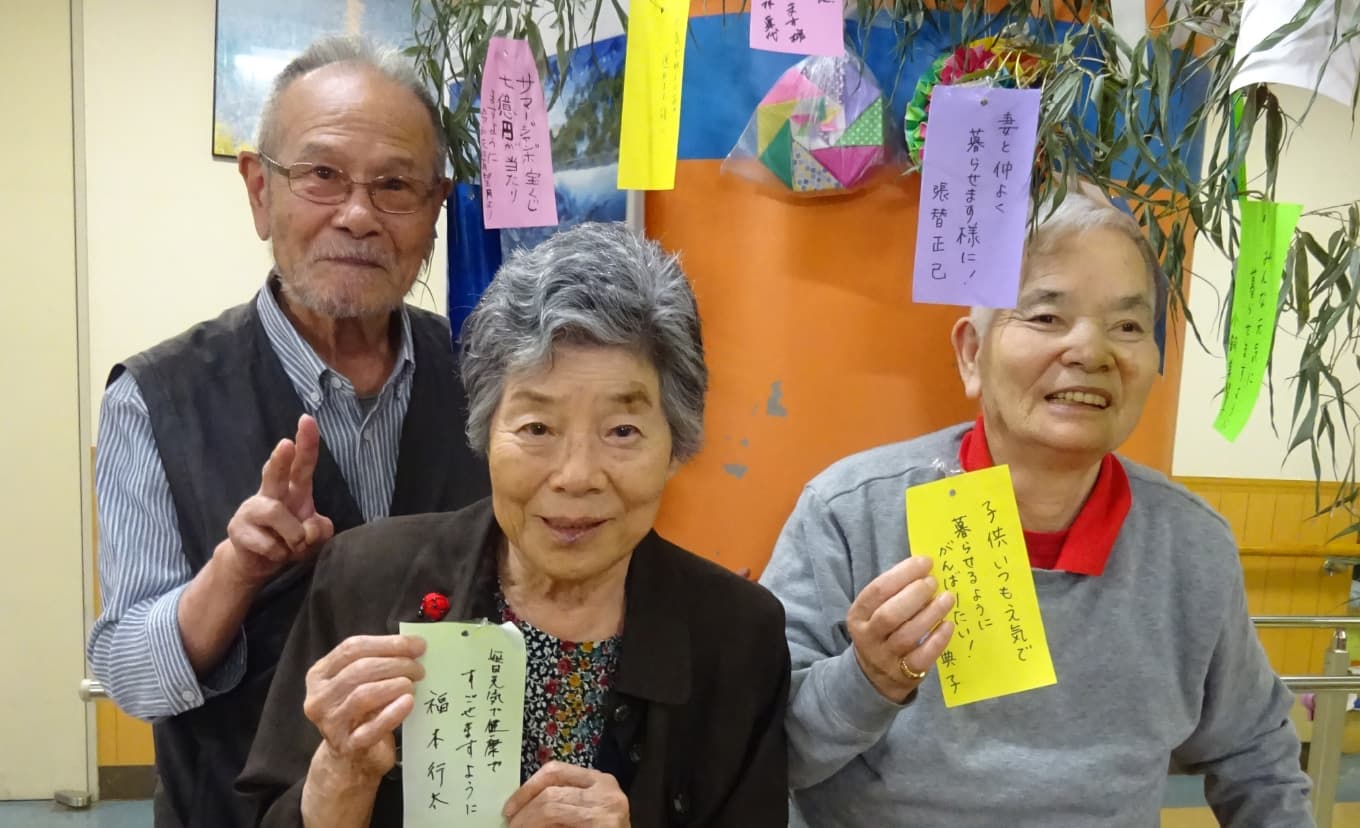 サマージャンボ宝くじ
七億円が当たり
ますように
妻と仲よく
暮らせます様に!
張替正己
みんな元気に
暮らせますように
毎日元気で健康で
すごせますように
福本行太
子供いつも元気で
暮らせるように
がんばりたい!
典子